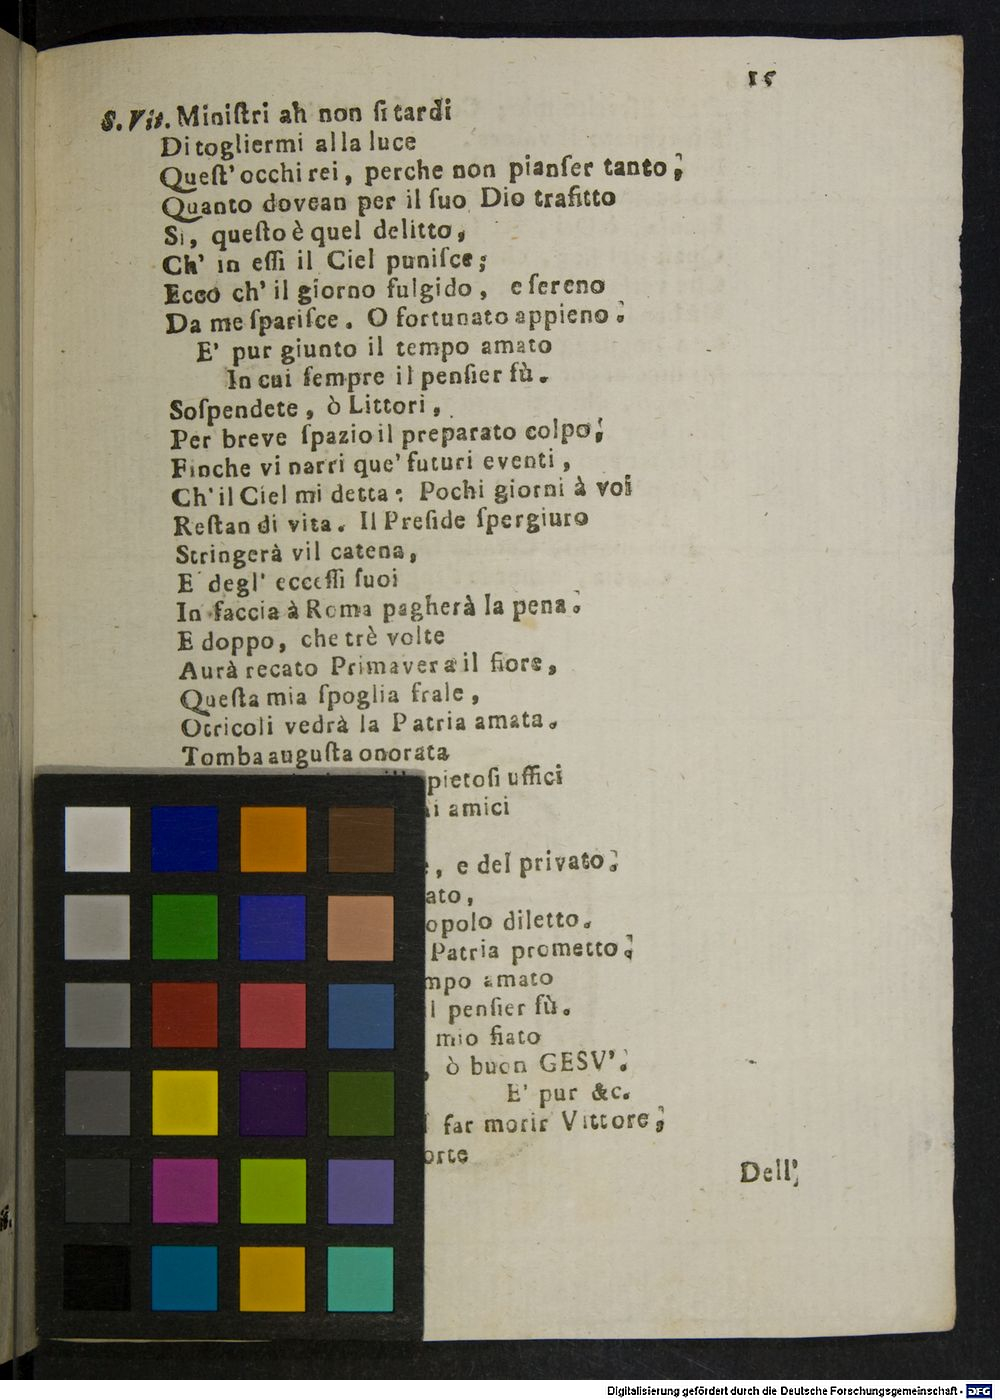 15
S. Vit. Miniſtri ah non ſi tardi
Di togliermi alla luce
Queſt' occhi rei, perche non pianſer tanto;
Quanto dovean per il ſuo Dio trafitto
Si, queſto è quel delitto,
Ch' in eſſi il Ciel puniſce;
Ecco ch' il giorno fulgido, e ſereno
Da me ſpariſce. O fortunato appieno;
E' pur giunto il tempo amato
In cui ſempre il penſier fù.
Soſpendete, ò Littori,
Per breve ſpazio il preparato colpo;
Finche vi narri que' futuri eventi,
Ch' il Ciel mi detta: Pochi giorni à voi
Reſtan di vita. Il Preſide ſpergiuro
Stringerà vil catena,
E degl' ecceſſi ſuoi
In faccia à Roma pagherà la pena.
E doppo, che trè volte
Aurà recato Primavera il fiore,
Queſta mia ſpoglia frale,
Otricoli vedrà la Patria amata.
Tomba auguſta onorata
pietoſi uffici
i amici
, e del privato;
ato,
opolo diletto.
Patria prometto;
mpo amato
l penſier fù.
mio fiato
, ò buon GESV';
E' pur &c.
far morir Vittore;
orte
Dell'
Digitalisierung gefördert durch die Deutsche Forschungsgemeinschaft - DFG